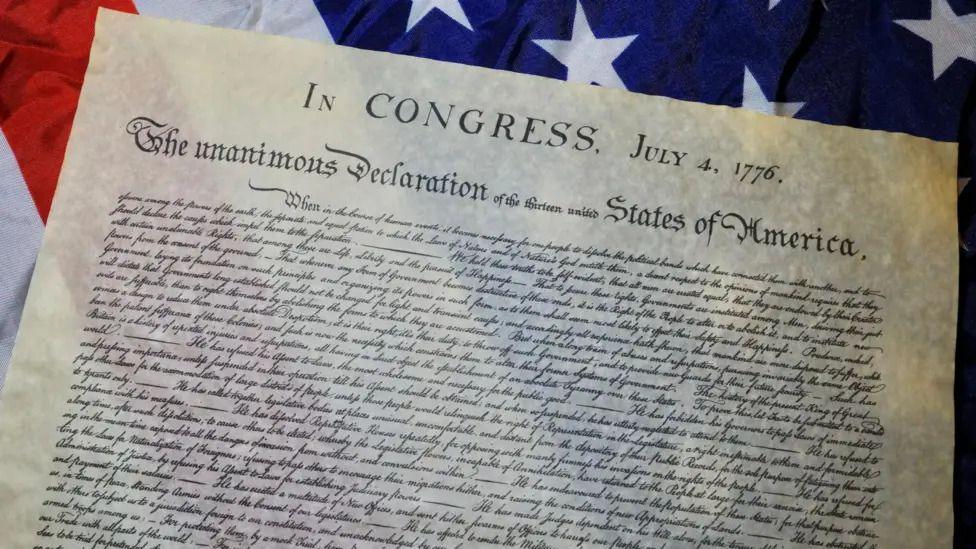 In CONGRESS, July 4, 1776.
The unanimous Declaration of the thirteen united States of America,
When in the Course of human events, it becomes necessary for one people to dissolve the political bands which have connected them with another, and to
assume among the powers of the earth, the separate and equal station to which the Laws of Nature and of Nature's God entitle them, a decent respect to the opinions of mankind requires that they
should declare the causes which impel them to the separation. We hold these truths to be self-evident, that all men are created equal, that they are endowed by their Creator
with certain unalienable Rights, that among these are Life, Liberty and the pursuit of Happiness. — That to secure these rights, Governments are instituted among Men, deriving their just
powers from the consent of the governed, — That whenever any Form of Government becomes destructive of these ends, it is the Right of the People to alter or to abolish it, and to institute new
Government, laying its foundation on such principles and organizing its powers in such form, as to them shall seem most likely to effect their Safety and Happiness. Prudence, indeed,
will dictate that Governments long established should not be changed for light and transient causes; and accordingly all experience hath shewn, that mankind are more disposed to suffer, while
evils are sufferable, than to right themselves by abolishing the forms to which they are accustomed. But when a long train of abuses and usurpations, pursuing invariably the same Object
evinces a design to reduce them under absolute Despotism, it is their right, it is their duty, to throw off such Government, and to provide new Guards for their future security. — Such has
been the patient sufferance of these Colonies; and such is now the necessity which constrains them to alter their former Systems of Government. The history of the present King of Great
Britain is a history of repeated injuries and usurpations, all having in direct object the establishment of an absolute Tyranny over these States. To prove this, let Facts be submitted to a candid
world. He has refused his Assent to Laws, the most wholesome and necessary for the public good. He has forbidden his Governors to pass Laws of immediate
and pressing importance, unless suspended in their operation till his Assent should be obtained; and when so suspended, he has utterly neglected to attend to them. He has refused to
pass other Laws for the accommodation of large districts of people, unless those people would relinquish the right of Representation in the Legislature, a right inestimable to them and formidable
to tyrants only. He has called together legislative bodies at places unusual, uncomfortable, and distant from the depository of their public Records, for the sole purpose of fatiguing them into
compliance with his measures. He has dissolved Representative Houses repeatedly, for opposing with manly firmness his invasions on the rights of the people. He has refused for
a long time, after such dissolutions, to cause others to be elected; whereby the Legislative powers, incapable of Annihilation, have returned to the People at large for their exercise; the State remain
ing in the mean time exposed to all the dangers of invasion from without, and convulsions within. He has endeavoured to prevent the population of these States; for that purpose obstruc
ting the Laws for Naturalization of Foreigners; refusing to pass others to encourage their migrations hither, and raising the conditions of new Appropriations of Lands. He has obstructed the
Administration of Justice, by refusing his Assent to Laws for establishing Judiciary powers. He has made Judges dependent on his
and payment of their salaries. He has erected a multitude of New Offices, and sent hither swarms of Officers to harrass our people
in times of peace, Standing Armies without the Consent of our legislatures. He has affected to render the
with others to subject us to a jurisdiction foreign to our constitution, and unacknowledged by our
armed troops among us: For protecting them, by a mock Trial
our Trade with all parts of the world: